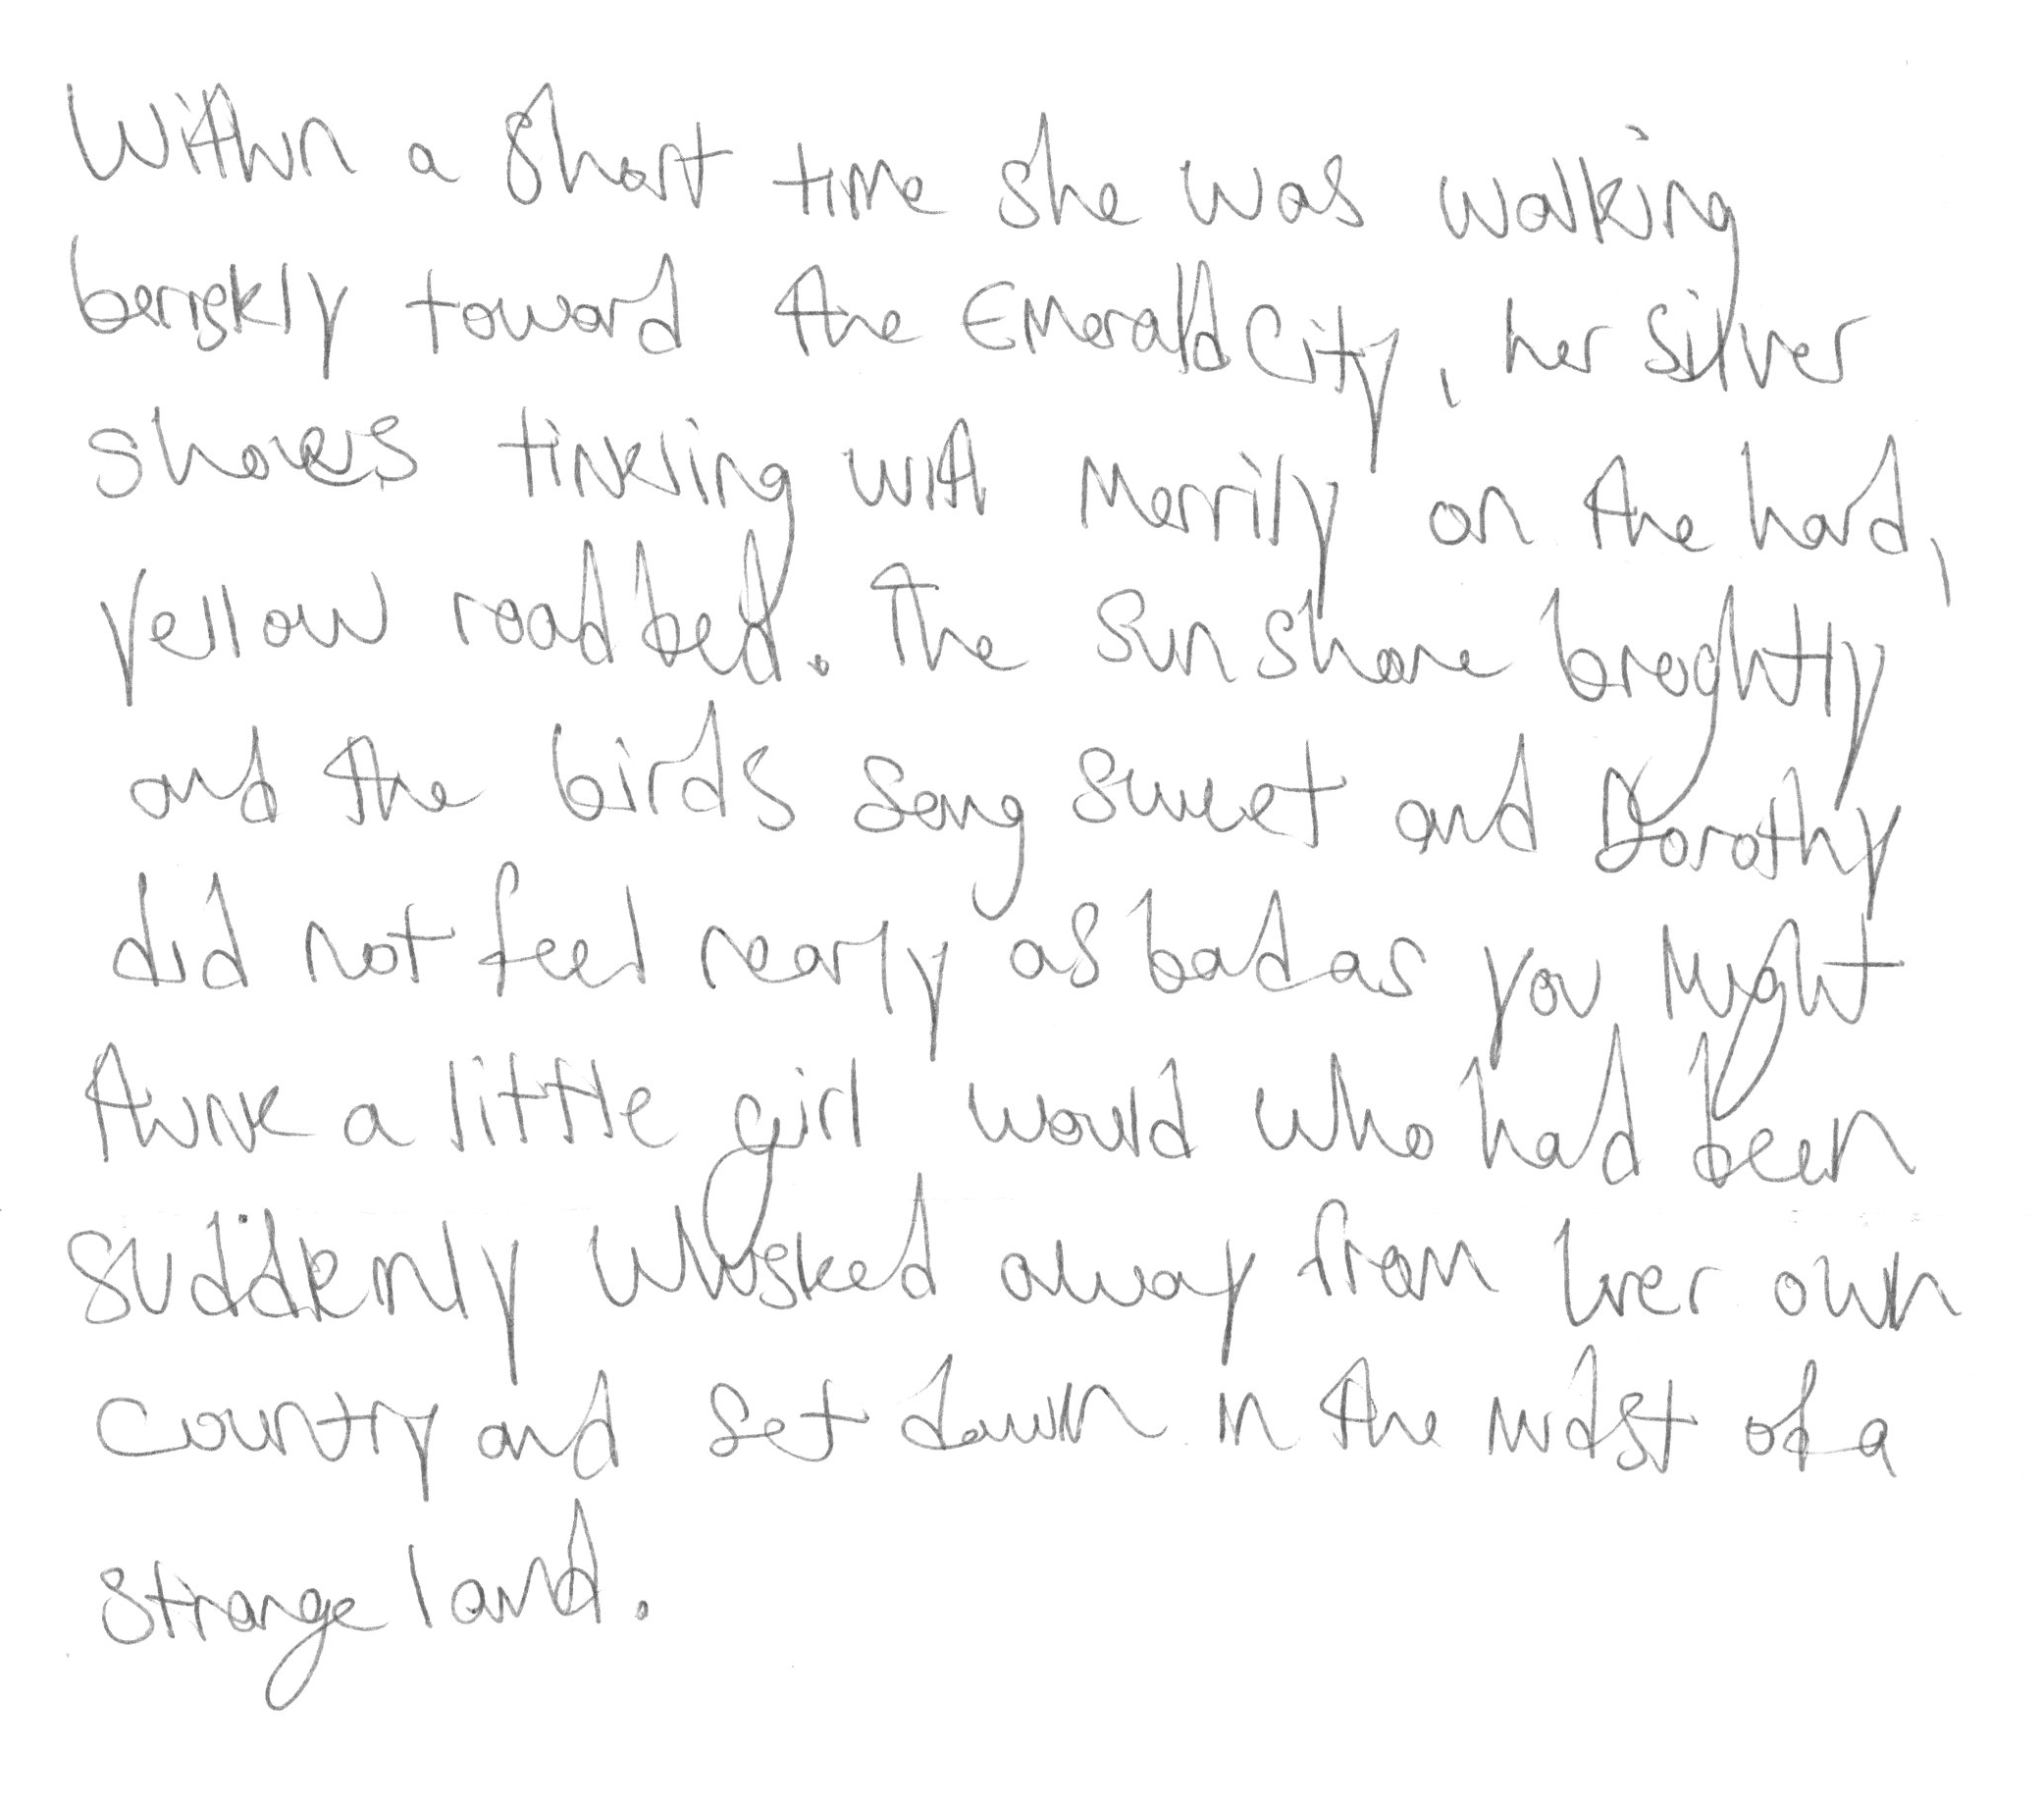 Within a short time she was walking
beriskly toward the Emerald City, her silver
shoes tinkling with merrily on the hard,
yellow roadbed. The sun shone brightly
and the birds song sweet and Dorothy
did not feel nearly as bad as you might
think a little girl would who had been
suddenly whisked away from her own
country and set down in the midst of a
strange land.